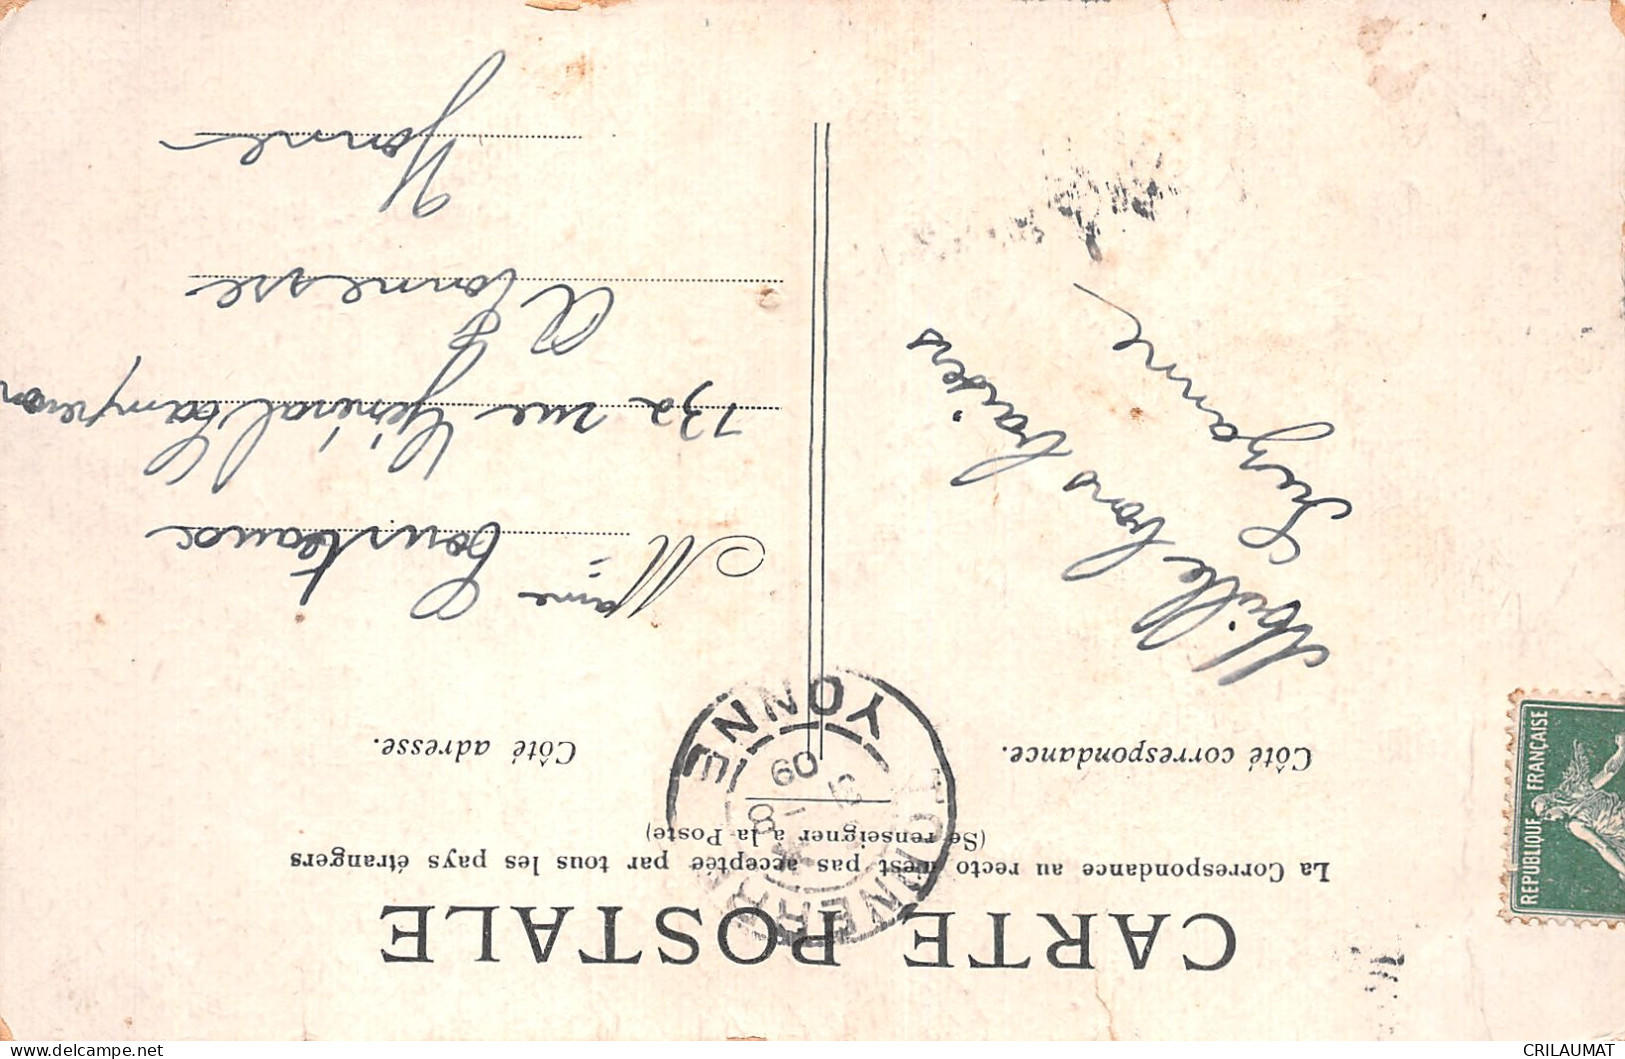 CARTE POSTALE
La Correspondance au recto n'est pas acceptée par tous les pays étrangers
(Se renseigner a la Poste)
Côté correspondance.
Côté adresse.
Mille bons baisers
Suzanne
Mame Cousteaux
132 rue Général Campenon
A Tonnerre
Yonne
TONNERRE
8 09
YONNE
REPUBLIQUE FRANÇAISE
www.delcampe.net
CRILAUMAT